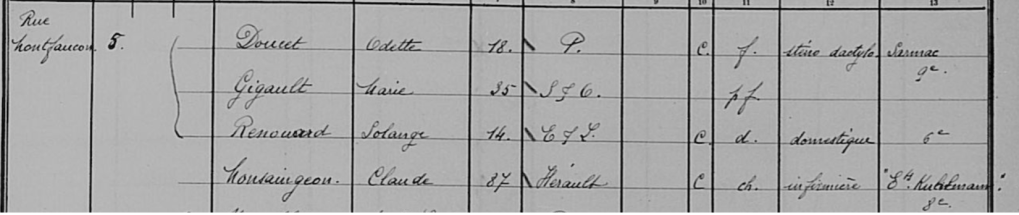 10 11 12 13
Rue
Montfaucon. 5. Doucet Odette 18. P. C. f. sténo dactylo. Sarmac
9e.
Gigault Marie 35 S & O. pf
Renouard Solange 14. E & L. C. d. domestique 6e
Monsaingeon. Claude 87 Hérault C ch. infirmière "Ets. Kuhlmann".
8e.